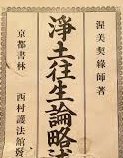 渥美契縁師著
淨土往生論略述
京都書林　西村護法舘